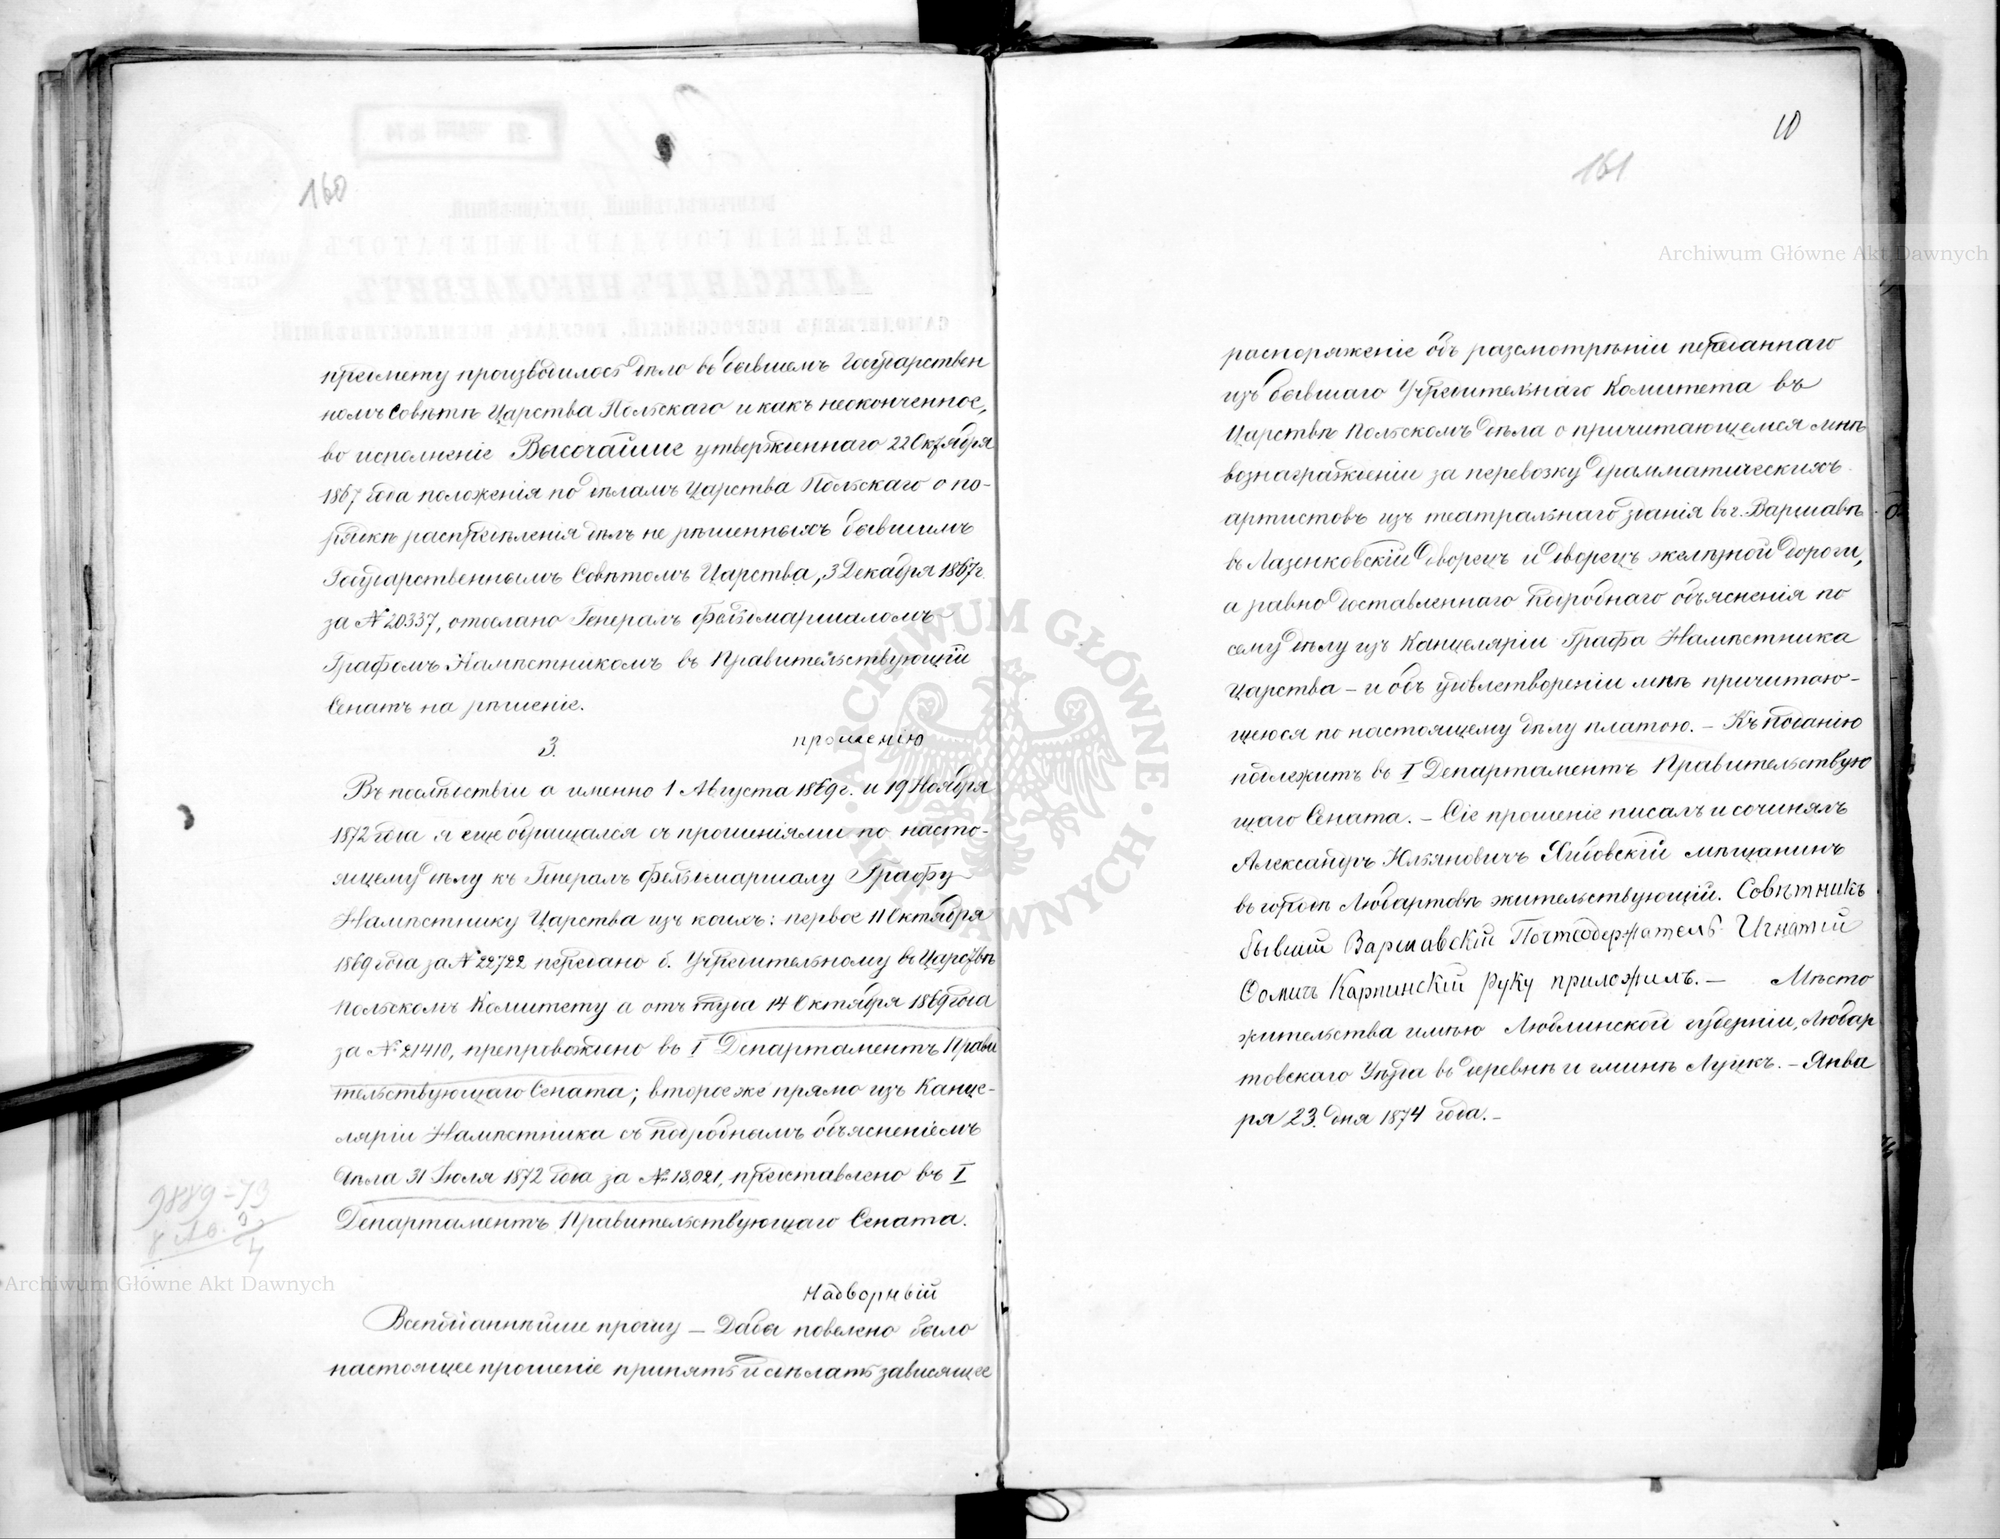 160
предмету производилось дѣло въ бывшемъ Государствен
номъ Совѣтѣ Царства Польскаго и какъ неоконченное,
во исполненіе Высочайше утвержденнаго 22 Октября
1867 года положенія по дѣламъ Царства Польскаго о по-
рядкѣ распредѣленія дѣлъ не рѣшенныхъ бывшимъ
Государственнымъ Совѣтомъ Царства, 3 Декабря 1867 г.
за № 20337, отослано Генералъ Фельдмаршаломъ
Графомъ Намѣстникомъ въ Правительствующій
Сенатъ на рѣшеніе.
3. прошенію
Въ послѣдствіи а именно 1 Августа 1869 г. и 19 Ноября
1872 года я еще обращался съ прошеніями по насто-
ящему дѣлу къ Генералъ Фельдмаршалу Графу
Намѣстнику Царства изъ коихъ: первое 11 Октября
1869 года за № 22722 передано б. Учредительному въ Царствѣ
Польскомъ Комитету а отъ туда 14 Октября 1869 года
за № 21410, препровождено въ I Департаментъ Прави
тельствующаго Сената; второе же прямо изъ Канце-
ляріи Намѣстника съ подробнымъ объясненіемъ
дѣла 31 Іюля 1872 года за № 13.021, представлено въ I
Департаментъ Правительствующаго Сената.
9889-73
Надворный
Всеподданнѣйше прошу — Дабы повелено было
настоящее прошеніе принять и сдѣлать зависящее
10
161
распоряженіе объ разсмотрѣніи переданнаго
изъ бывшаго Учредительнаго Комитета въ
Царствѣ Польскомъ дѣла о причитающемся мнѣ
вознагражденіи за перевозку драмматическихъ
артистовъ изъ театральнаго зданія въ г. Варшавѣ
въ Лазенковскій дворецъ и дворецъ желѣзной дороги,
а равно доставленнаго подробнаго объясненія по
сему дѣлу изъ Канцеляріи Графа Намѣстника
Царства — и объ удовлетвореніи мнѣ причитаю-
щеюся по настоящему дѣлу платою. — Къ поданію
подлежитъ въ I Департаментъ Правительствую
щаго Сената. — Сіе прошеніе писалъ и сочинялъ
Александръ Юльяновичъ мѣщанинъ
въ городѣ Любартовѣ жительствующій. Совѣтникъ
бывшій Варшавскій Почтсодержатель Игнатій
Ѳомичъ Карпинскій руку приложилъ. — Мѣсто
жительства имѣю Люблинской губерніи, Любар
товскаго Уѣзда въ деревнѣ и гминѣ Луцкъ. — Янва
ря 23 дня 1874 года. —
Archiwum Główne Akt Dawnych
Archiwum Główne Akt Dawnych
ARCHIWUM GŁÓWNE AKT DAWNYCH